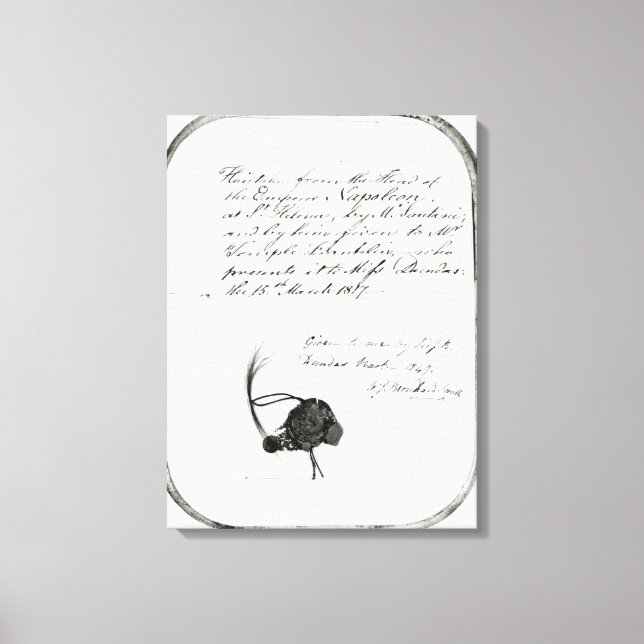 from the Head of
the Emperor Napoleon,
at St Helena, by Mr Santini,
and by being given to Mr
Temple Franklin, who
presents it to Miss Dundas.
the 15th March 1817.
Given to me by Miss
Dundas 1847.